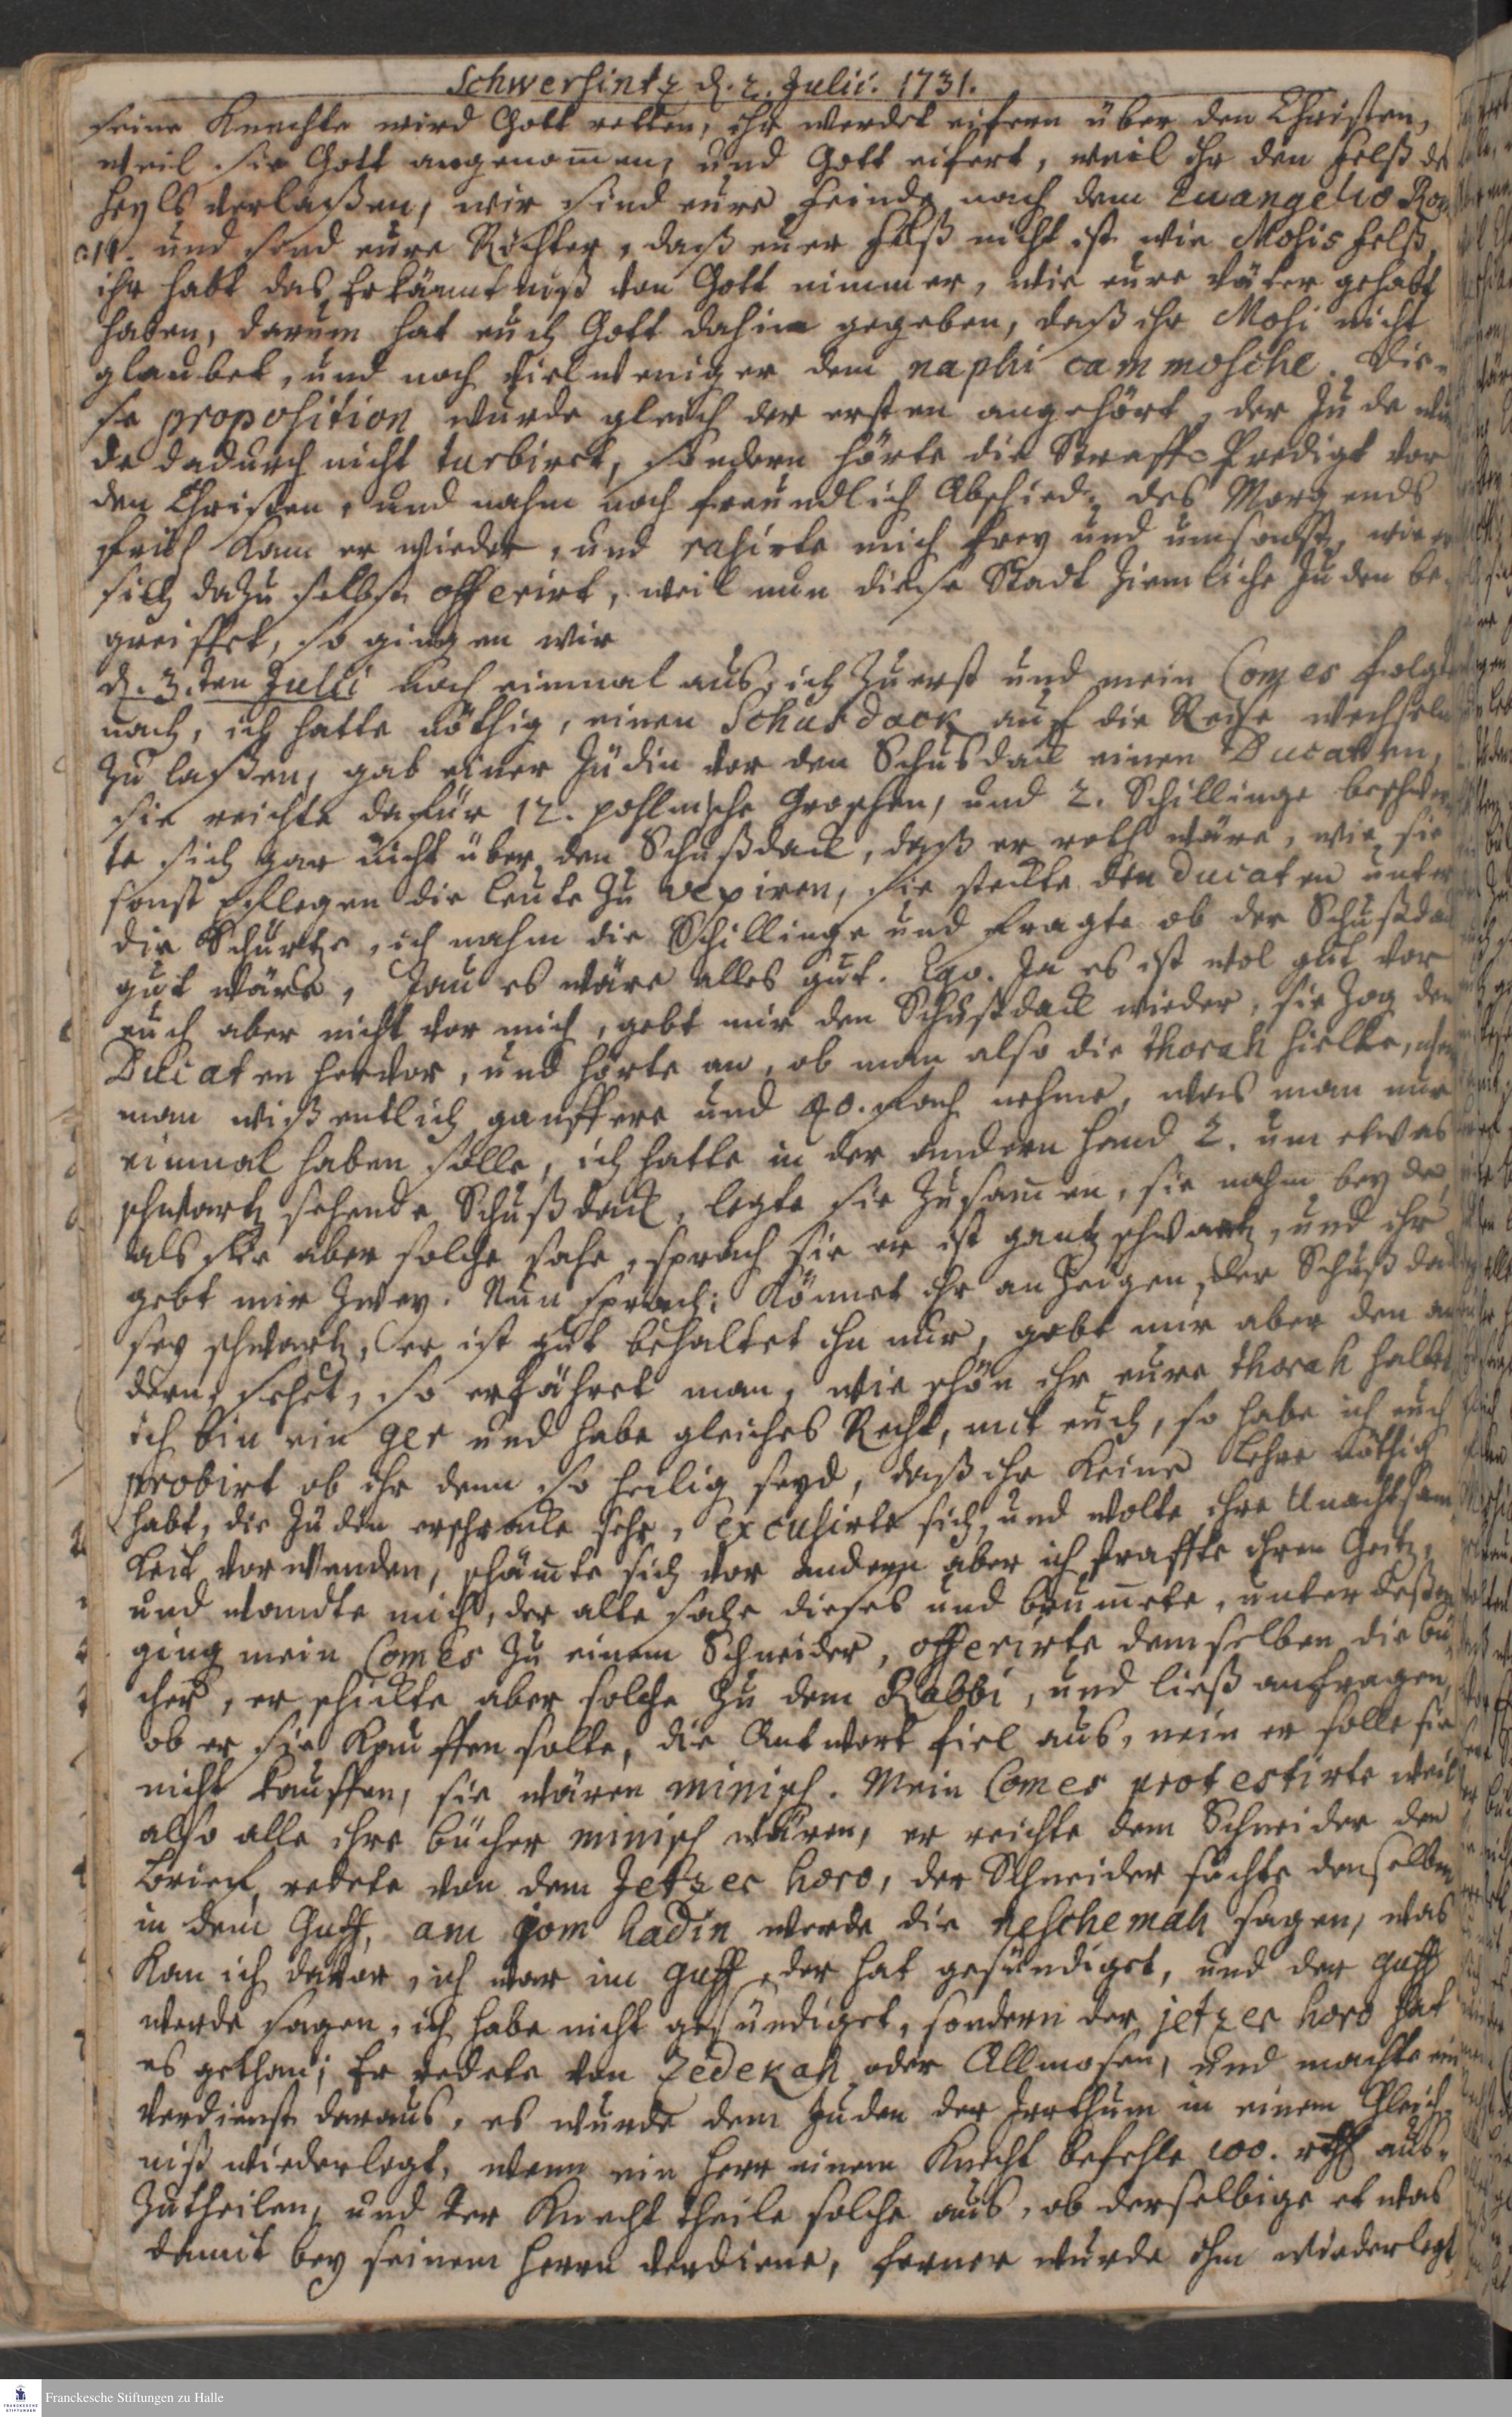 Schwersintz d. 2. Julii. 1731.
seine Knechte wird Gott retten, ihr werdet eifern über den Christen,
weil sie Gott angenom̄en, und Gott eifert, weil ihr den Felß des
Heyls verlaßen, wir sind eure Feinde nach dem Evangelio Rom
a. 11. und sind eure Richter, daß euer Felß nicht ist wie Mosis Felß,
ihr habt das Erkänntnuß von Gott nimmer, wie eure Väter gehabt
haben, darum hat euch Gott dahin gegeben, daß ihr Mosi nicht
glaubet, und noch vielweniger dem naphi cammosche. Die-
se proposition wurde gleich der ersten angehört, der Jude wur
de dadurch nicht turbiret, sondern hörte die Straff-Predigt vor
den Christen, und nahm noch freundlich Abschied, des Morgends
früh kam er wieder, und rasirte mich frey und umsonst, wie er
sich dazu selbst offerirt, weil nun diese Stadt ziemliche Juden be-
greiffet, so gingen wir
d. 3.ten Julii noch einmal aus, ich zuerst und mein Comes folgte
nach, ich hatte nöthig, einen Schusdack auf die Reise wechseln
zu laßen, gab einer Jüdin vor den Schusdack einen Ducaten,
sie reichte dafür 12. pohlnische Groschen, und 2. Schillinge beschwer
te sich gar nicht über den Schußdack, daß er roth wäre, wie sie
sonst pflegen die Leute zu vexiren, sie steckte den Ducaten unter
die Schürtze, ich nahm die Schillinge und fragte ob der Schußdack
gut wäre, Jau es wäre alles gut. Ego. Ja es ist wol gut vor
euch aber nicht vor mich, gebt mir den Schußdack wieder, sie zog den
Ducaten hervor, und hörte an, ob man also die thorah hielte, wen
man wißentlich gauffere und 40.fach nehme, was man nur
einmal haben solle, ich hatte in der andern Hand 2. um etwas
schwartz sehende Schußdack, legte sie zusam̄en, sie nahm beyde,
als sie aber solche sahe, sprach sie er ist gantz schwartz, und ihr
gebt mir zwey. Nun sprach: könnet ihr anzeigen, der Schußdack
sey schwartz, er ist gut behaltet ihn nur, gebt mir aber den an
dern, sehet, so erfähret man, wie schön ihr eure thorah haltet
ich bin ein ger und habe gleiches Recht, mit euch, so habe ich euch
probirt ob ihr denn so heilig seyd, daß ihr keine Lehre nöthig
habt, die Jüdin erschrack sehr, excusirte sich, und wolte ihre Unachtsam
keit vorwenden, schäm̄te sich vor andern aber ich straffte ihren Geitz,
und wandte mich, der alte sahe dieses und brum̄ete, unterdeßen
ging mein Comes zu einem Schneider, offerirte demselben die bü
cher, er schickte aber solche zu dem Rabbi, und ließ anfragen,
ob er sie kauffen solte, die Antwort fiel aus, nein er solle sie
nicht kauffen, sie wären minisch. Mein Comes protestirte weil
also alle ihre bücher minisch wären, er reichte dem Schneider den
brief, redete von dem Jetzer horo, der Schneider suchte denselben
in dem Guff, am jom hadin werde die neschemah sagen, was
kan ich davor, ich war im guff, der hat gesündiget, und der guff
werde sagen, ich habe nicht gesündiget, sondern der jetzer horo hat
es gethan; Er redete von Zedekah oder Allmosen, und machte ein
verdienst daraus, es wurde dem Juden der Irrthum in einem Gleich-
niß wiederlegt, wenn ein Herr einem Knecht befehle 100. rth aus-
zutheilen, und der Knecht theile solche aus, ob derselbige etwas
damit bey seinem Herrn verdiene, ferner wurde ihm wiederlegt
Franckesche Stiftungen zu Halle